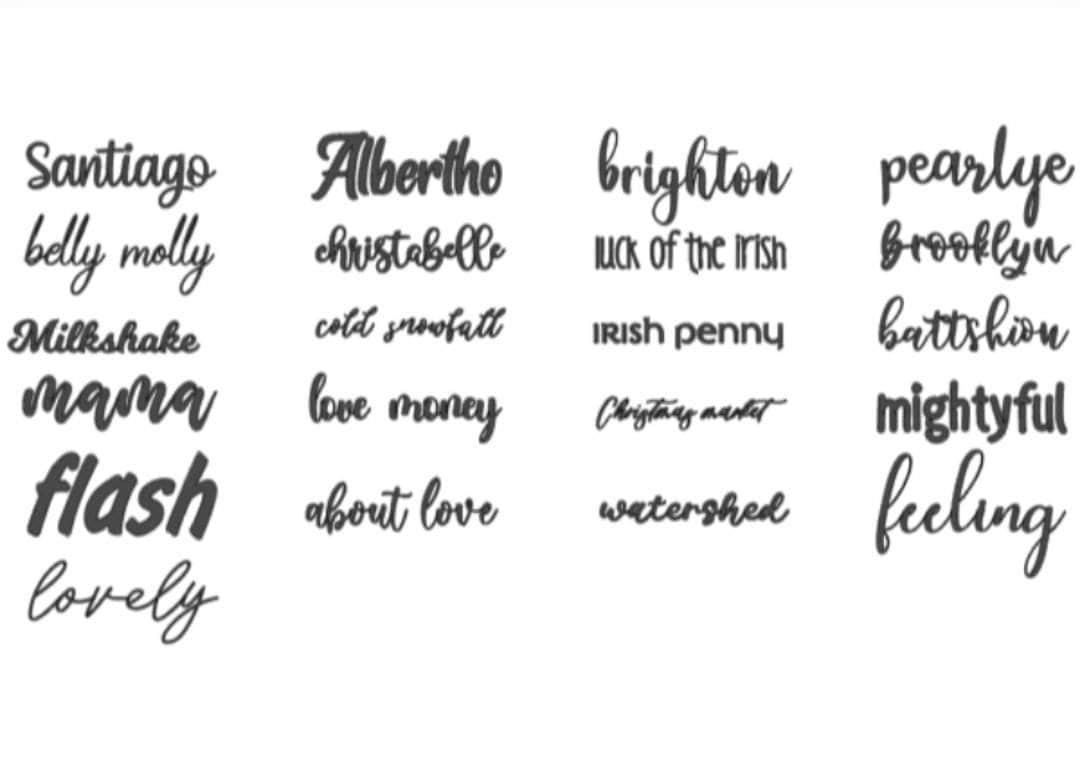 Santiago
belly molly
Milkshake
mama
flash
lovely
Albertho
christabelle
cold snowfall
love money
about love
brighton
luck of the irish
irish penny
Christmas market
watershed
pearlye
brooklyn
battshion
mightyful
feeling